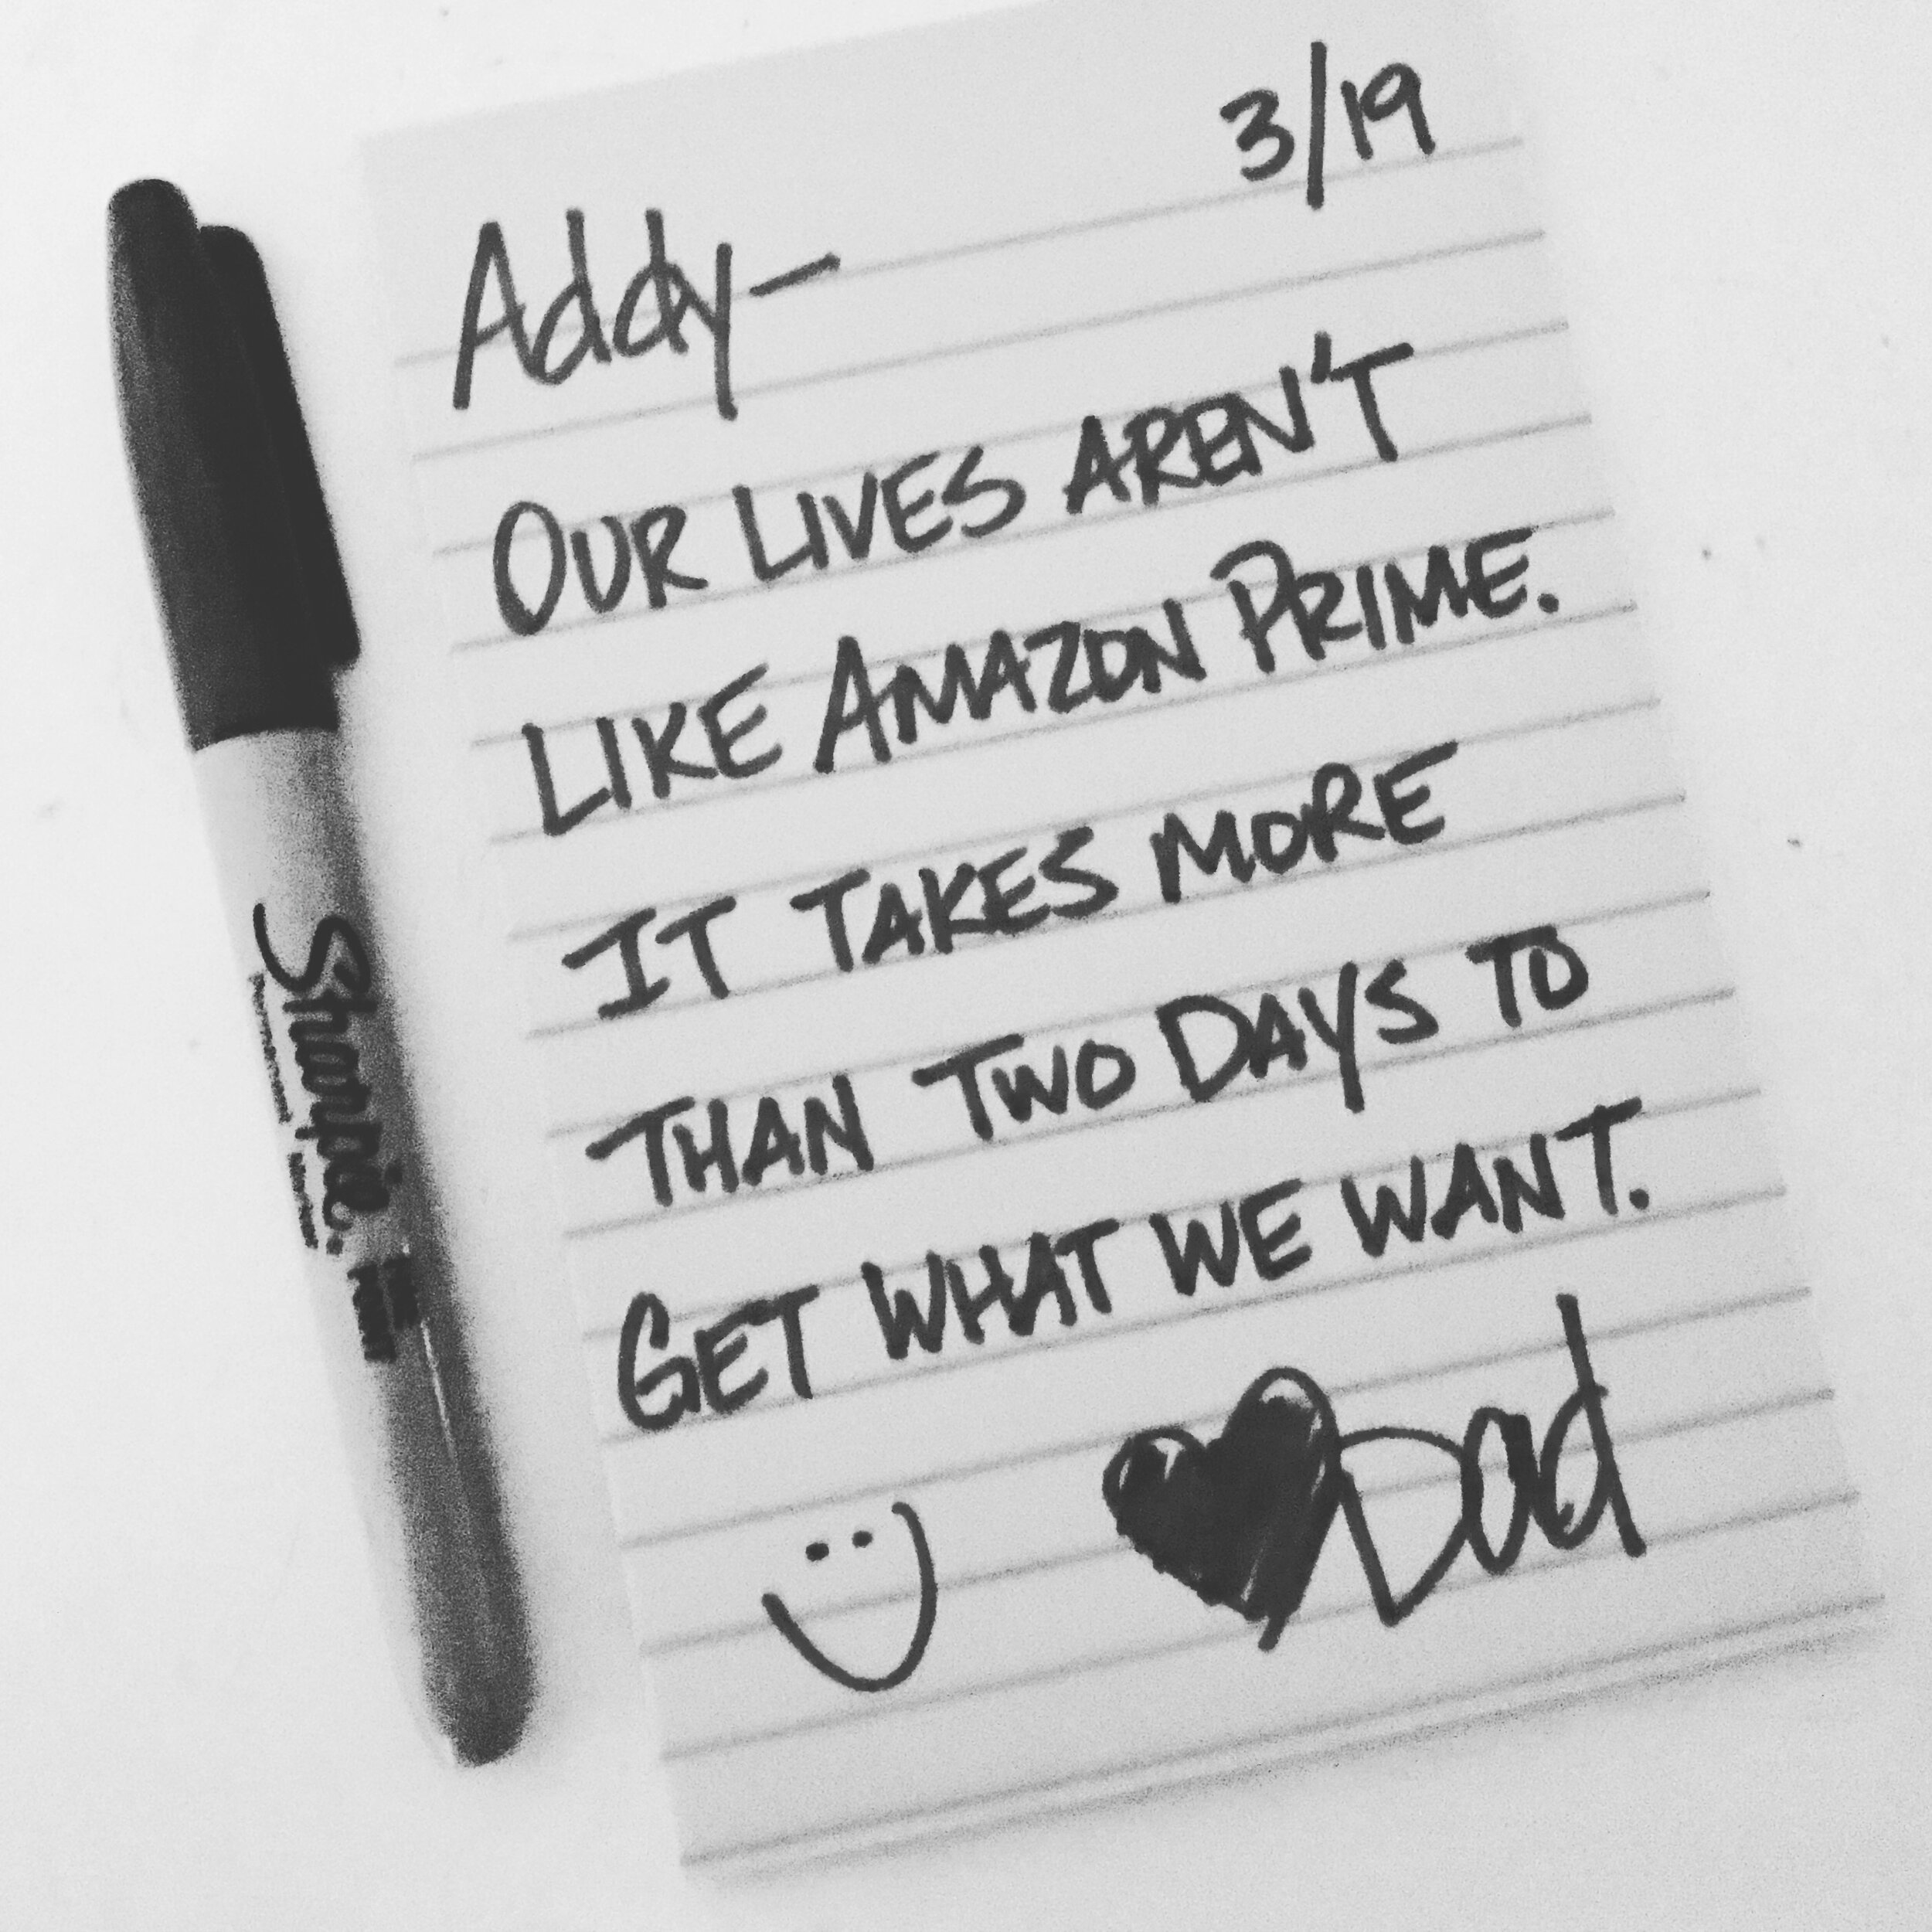 3/19
Addy-
OUR LIVES AREN'T
LIKE AMAZON PRIME.
IT TAKES MORE
THAN TWO DAYS TO
GET WHAT WE WANT.
Dad
Sharpie.